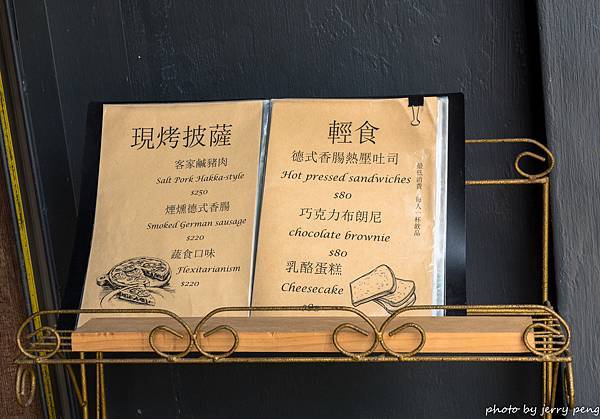 現烤披薩
客家鹹豬肉
Salt Pork Hakka-style
$250
煙燻德式香腸
Smoked German sausage
$220
蔬食口味
Flexitarianism
$220
輕食
德式香腸熱壓吐司
Hot pressed sandwiches
$80
巧克力布朗尼
chocolate brownie
$80
乳酪蛋糕
Cheesecake
最低消費：每人一杯飲品
photo by jerry peng